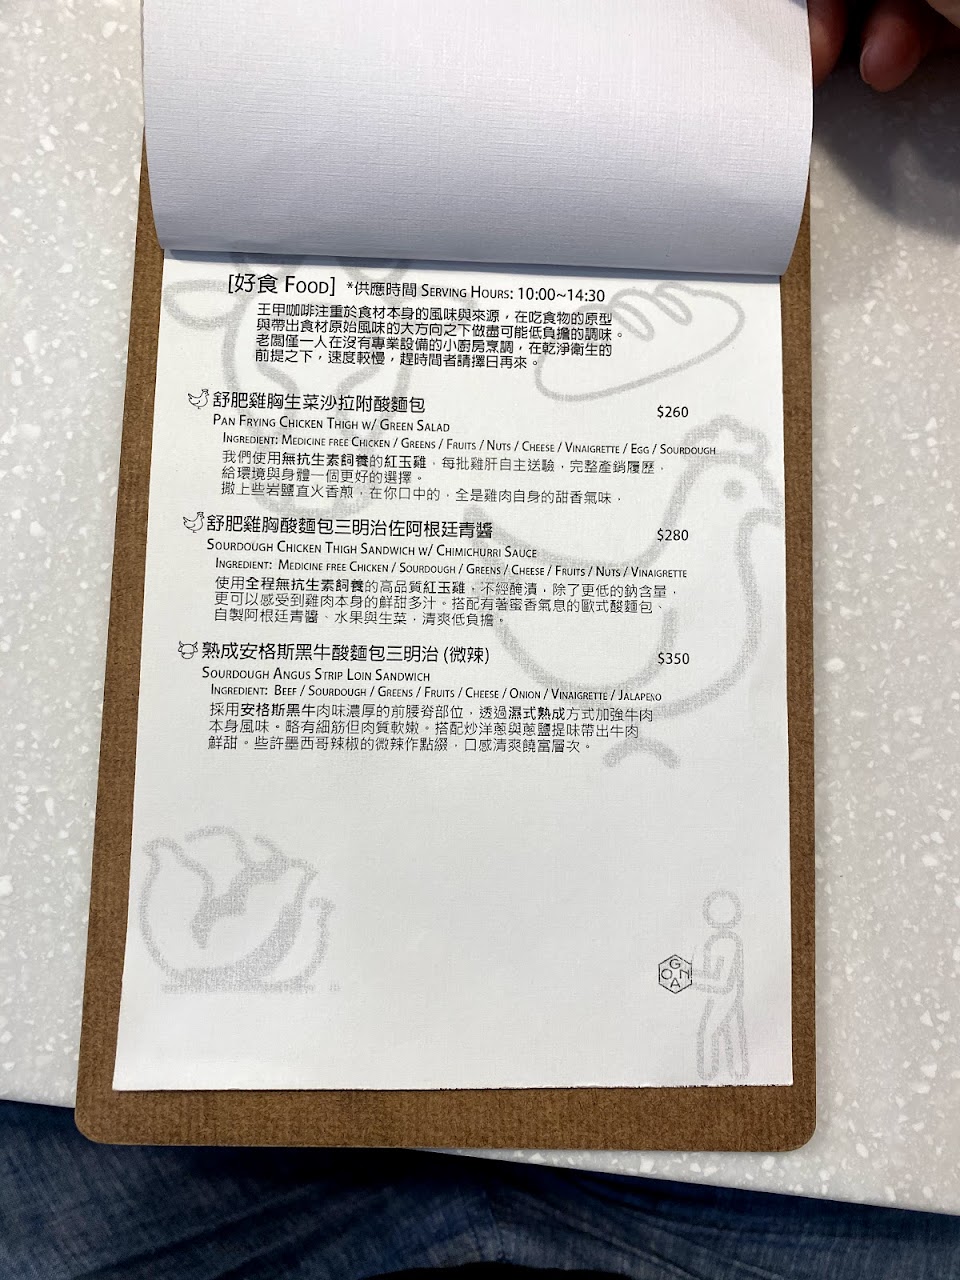 [好食 FOOD] *供應時間 SERVING HOURS: 10:00~14:30
王甲咖啡注重於食材本身的風味與來源，在吃食物的原型
與帶出食材原始風味的大方向之下做盡可能低負擔的調味。
老闆僅一人在沒有專業設備的小廚房烹調，在乾淨衛生的
前提之下，速度較慢，趕時間者請擇日再來。
舒肥雞胸生菜沙拉附酸麵包 $260
PAN FRYING CHICKEN THIGH W/ GREEN SALAD
INGREDIENT: MEDICINE FREE CHICKEN / GREENS / FRUITS / NUTS / CHEESE / VINAIGRETTE / EGG / SOURDOUGH
我們使用無抗生素飼養的紅玉雞，每批雞肝自主送驗，完整產銷履歷，
給環境與身體一個更好的選擇。
撒上些岩鹽直火香煎，在你口中的，全是雞肉自身的甜香氣味，
舒肥雞胸酸麵包三明治佐阿根廷青醬 $280
SOURDOUGH CHICKEN THIGH SANDWICH W/ CHIMICHURRI SAUCE
INGREDIENT: MEDICINE FREE CHICKEN / SOURDOUGH / GREENS / CHEESE / FRUITS / NUTS / VINAIGRETTE
使用全程無抗生素飼養的高品質紅玉雞，不經醃漬，除了更低的鈉含量，
更可以感受到雞肉本身的鮮甜多汁。搭配有著蜜香氣息的歐式酸麵包、
自製阿根廷青醬、水果與生菜，清爽低負擔。
熟成安格斯黑牛酸麵包三明治 (微辣) $350
SOURDOUGH ANGUS STRIP LOIN SANDWICH
INGREDIENT: BEEF / SOURDOUGH / GREENS / FRUITS / CHEESE / ONION / VINAIGRETTE / JALAPENO
採用安格斯黑牛肉味濃厚的前腰脊部位，透過濕式熟成方式加強牛肉
本身風味。略有細筋但肉質軟嫩。搭配炒洋蔥與蔥鹽提味帶出牛肉
鮮甜。些許墨西哥辣椒的微辣作點綴，口感清爽饒富層次。
GONA